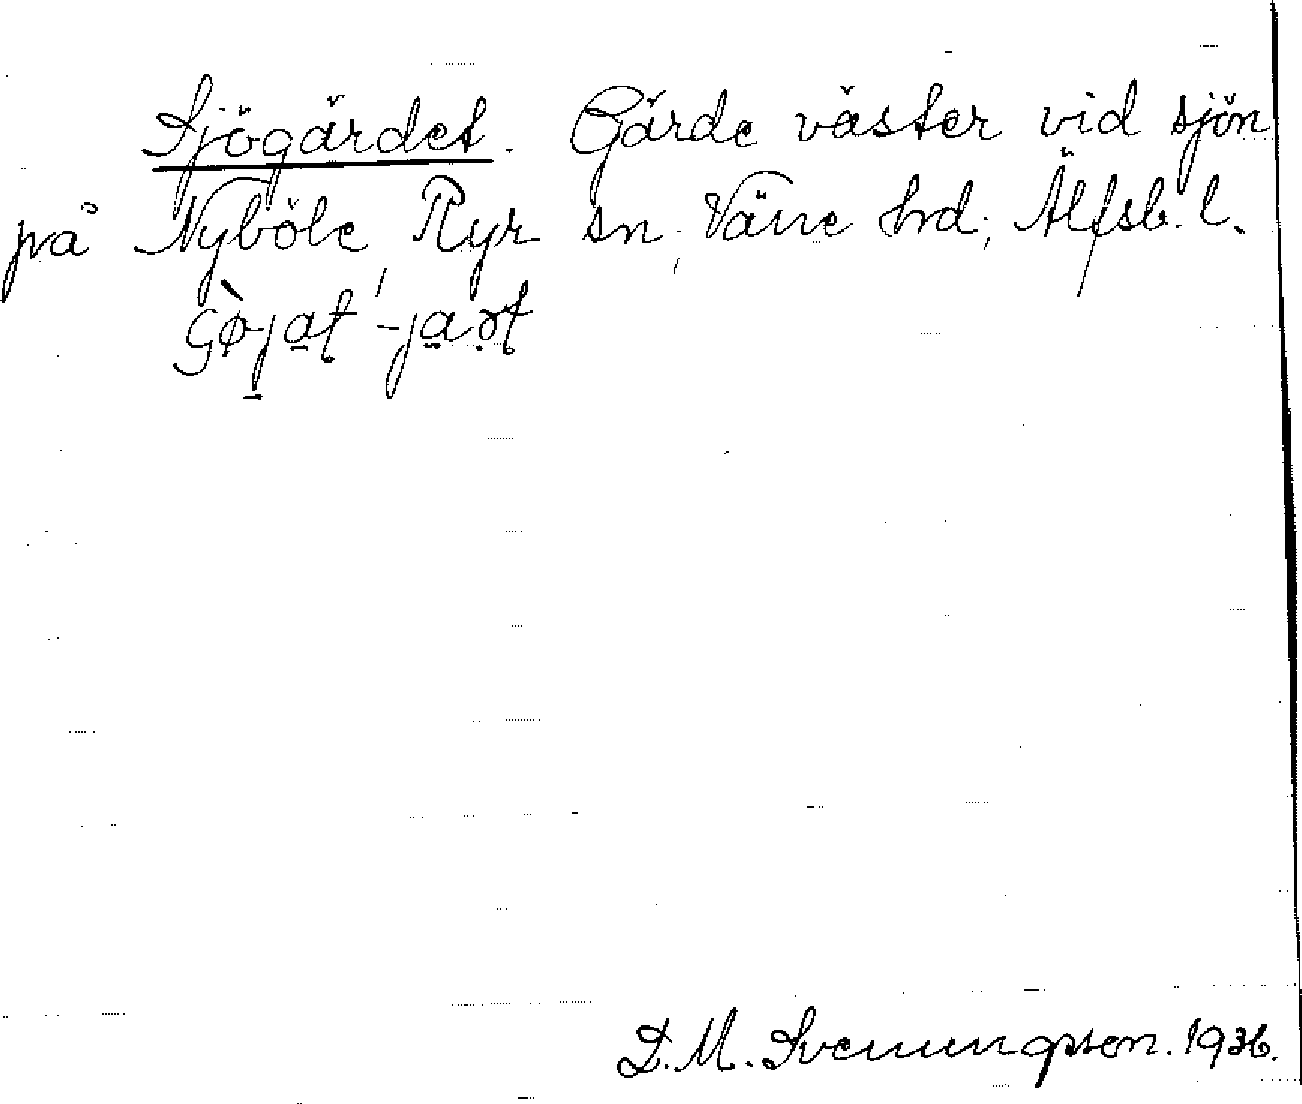 Sjögärdet. Gärde väster vid sjön
på Nyböle, Ryr sn, Väne hrd; Älfsb. l.
D. M. Svenungsson. 1936.